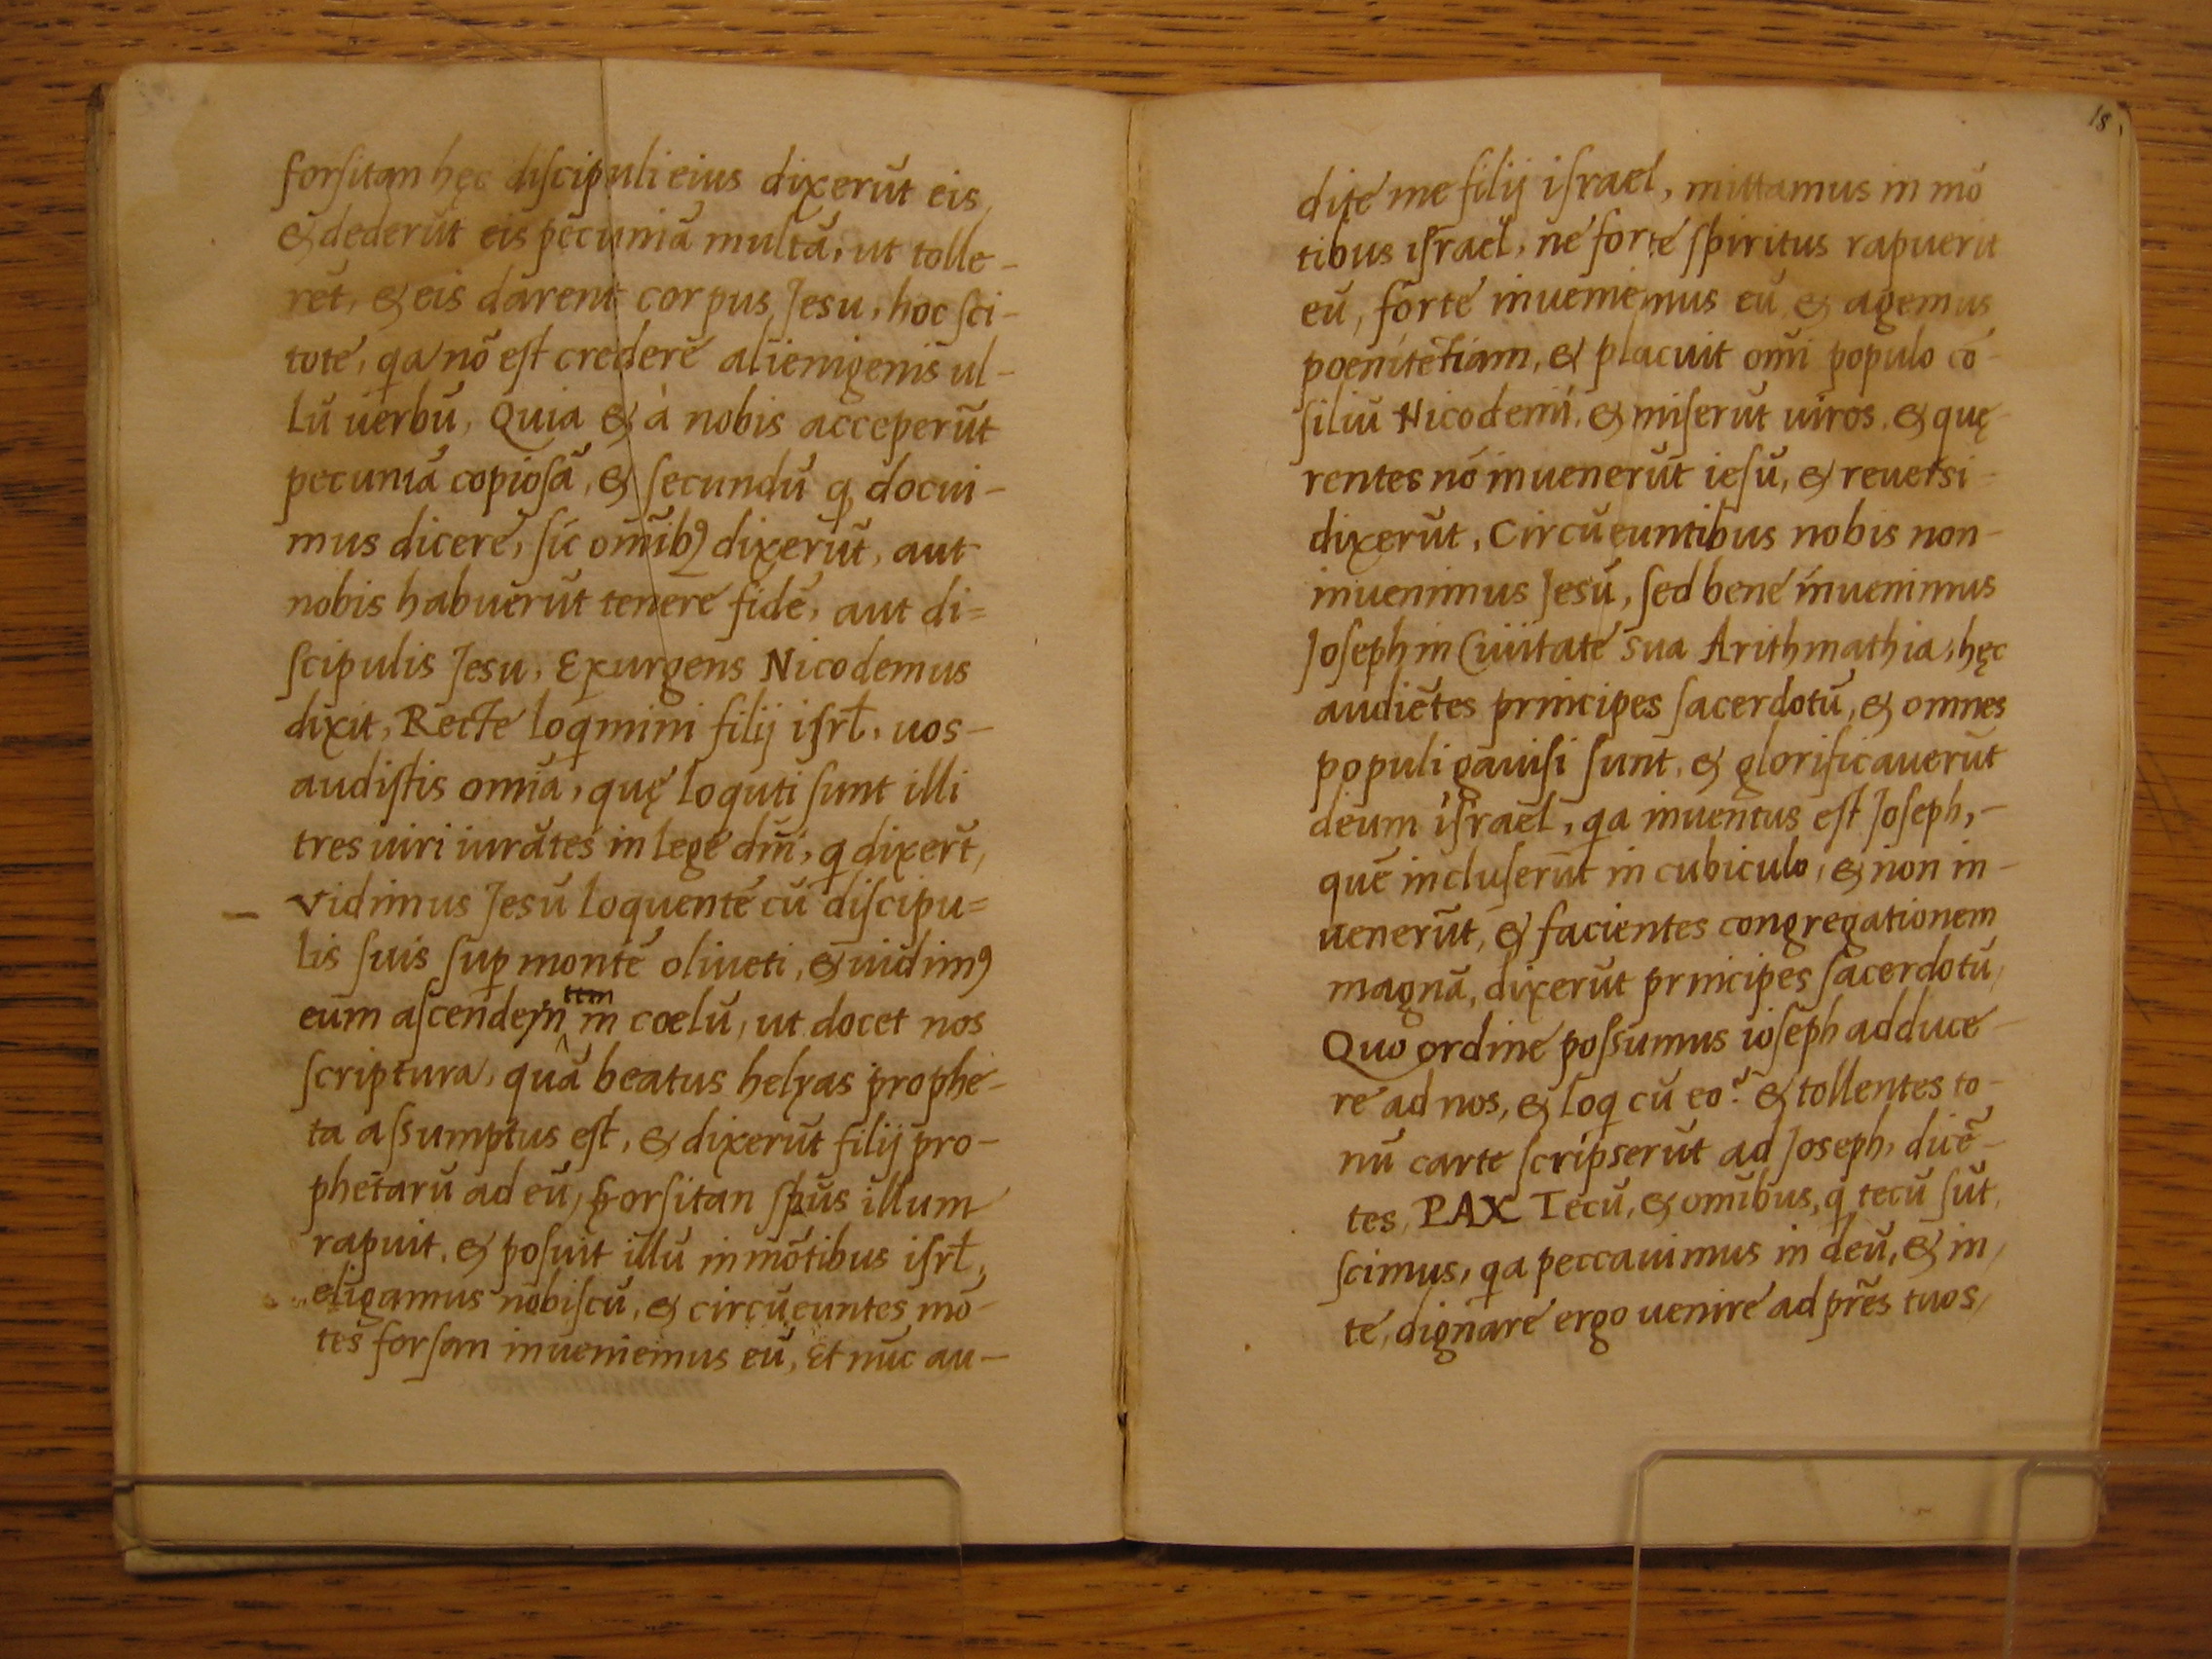 forsitan hęc discipuli eius dixerūt eis,
& dederūt eis pecuniā multā, ut tolle-
rēt, & eis darent corpus Jesu, hoc sci-
tote, qa nō est credere alienigenis ul-
lū uerbū, Quia & à nobis acceperūt
pecuniā copiosā, & secundū q docui-
mus dicere, sic omībꝰ dixerūt, aut
nobis habuerūt tenere fidē, aut di=
scipulis Jesu, Exurgens Nicodemus
dixit, Recte loqmini filij isrł, uos-
audistis omīa, quę loquti sunt illi
tres uiri iurātes in lege dm̄i, q dixert̄,
Vidimus Jesū loquentē cū discipu=
lis suis sup montē oliueti, & uidimꝰ
eum ascendem tem in cœlū, ut docet nos
scriptura, quā beatus helyas prophe-
ta assumptus est, & dixerūt filij pro-
phetarū ad eū, forsitan spūs illum
rapuit, & posuit illū in mōtibus isrł,
eligamus nobiscū, & circūeuntes mō-
tes forsan inueniemus eū, Et nūc au-
18
dite me filij israel, mittamus in mō
tibus israel, ne forte spiritus rapuerit
eū, forte inueniemus eū & agemus
poenitētiam, & placuit omī populo cō-
siliū Nicodemi, & miserūt uiros, & quę
rentes nō inuenerūt iesū, & reuersi-
dixerūt, Circūeuntibus nobis non-
inuenimus Jesū, sed bene inuenimus
Joseph in Ciuitate sua Arithmathia, hęc
audiētes principes sacerdotū, & omnes
populi gauisi sunt, & glorificauerūt
deum israel, qa inuentus est Joseph,-
quē incluserūt in cubiculo, & non in-
uenerūt, & facientes congregationem
magnā, dixerūt principes sacerdotū,
Quo ordine possumus ioseph adduce-
re ad nos, & loq cū eo? & tollentes to-
nū carte scripserūt ad Joseph, dicē-
tes, PAX Tecū, & omībus, q tecū sūt,
scimus, qa peccauimus in deū, & in,
te, dignare ergo uenire ad pr̄es tuos,